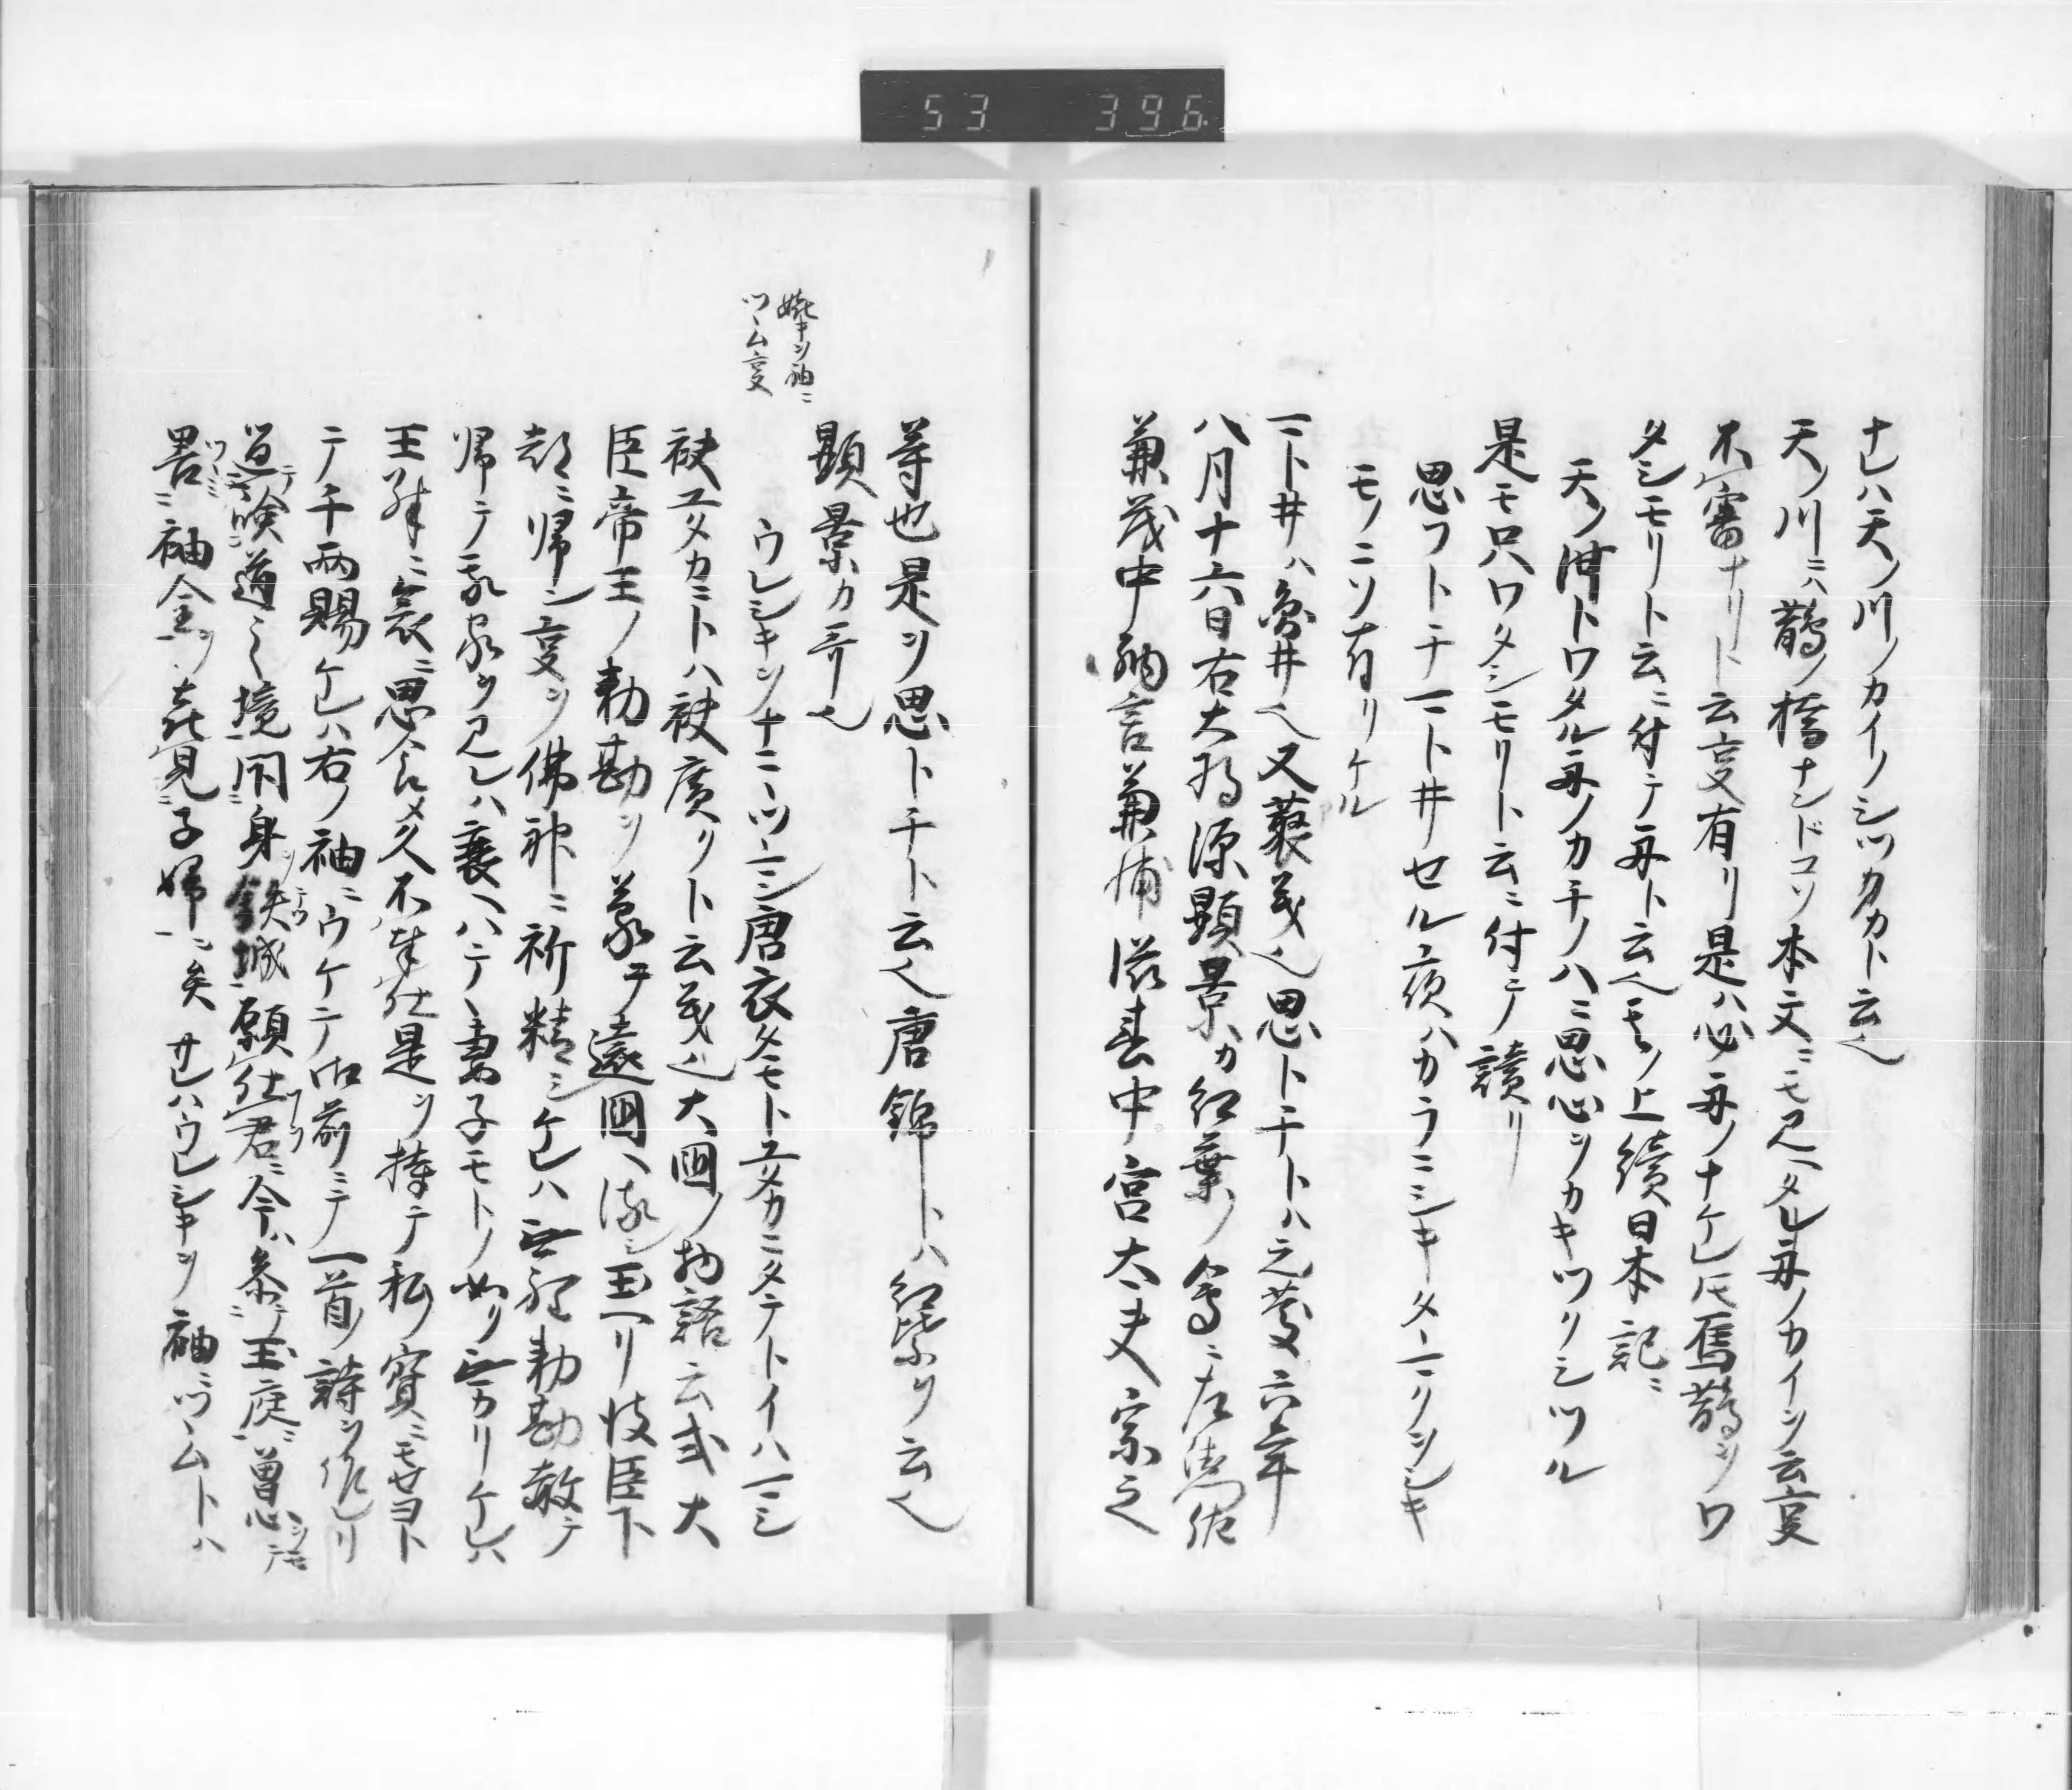 53 396
ナレハ天ノ川ノカイノシツクカト云也
天ノ川ニハ鵲ノ橋ナンドコソ本文ニモ見ヘタレ舟ノカイント云事
不審ナリト云事有リ是ハ必舟ノナケレ𪜈烏鵲ヲワ
タシモリト云ニ付テ舟ト云也其ノ上續日本記ニ
天ノ津トワタル舟ノカチノハニ思心ヲカキツクシツル
是モ只ワタシモリト云ニ付テ讀リ
思フトチマトヰセル夜ハカラニシキタヽマクヲシキ
モノニソ有リケル
マトヰハ圓井也又褻義也思トチトハ元慶六年
八月十六日右大将源顕景カ紅葉ノ會ニ左馬佐
兼茂中納言兼輔滋春中宮大夫宗之
等也是ヲ思トチト云也唐錦トハ紅葉ヲ云也
顕景カ哥也
嬉キヲ袖ニ
ツヽム事
ウレシキヲナニヽツヽマン唐衣タモトユタカニタテトイハマシ
袂ユタカニトハ袂廣クト云義也大國ノ物語云或大
臣帝王ノ勅勘ヲ蒙テ遠國ヘ流シ玉ヘリ彼臣下
都ニ歸ン事ヲ佛神ニ祈精シケレハ無程勅勘赦テ
帰テ我家ヲ見レハ衰ヘハテヽ妻子モトノ如クモ無カリケレハ
王殊ニ哀ニ思食メ久不奉仕是ヲ持テ私ノ寳ニモセヨト
テノ千両賜ケレハ右ノ袖ニウケテ御前ニテ一首ノ詩ヲ作レリ
道険道之境閑身鉄城願仕君ニ今ハ参テ玉庭ニ曽思
裹ニ袖金ヲ喜見子婦ニ矣 サレハウレシキヲ袖ニツヽムトハ